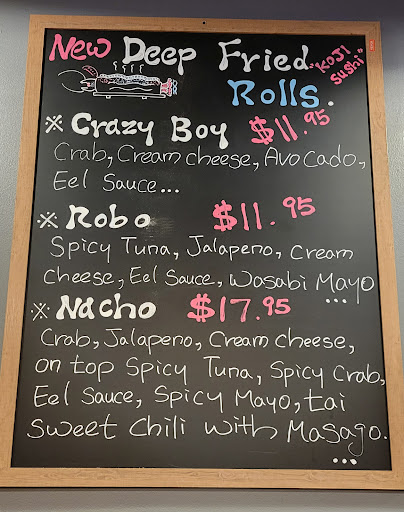 New Deep Fried "KOJI
Sushi"
Rolls.
※ Crazy Boy $11.95
Crab, Cream cheese, Avocado,
Eel Sauce...
※ Robo $11.95
Spicy Tuna, Jalapeno, Cream
Cheese, Eel Sauce, Wasabi Mayo
...
※ Nacho $17.95
Crab, Jalapeno, Cream Cheese,
on top Spicy Tuna, Spicy Crab,
Eel Sauce, Spicy Mayo, tai
Sweet Chili with Masago.
...